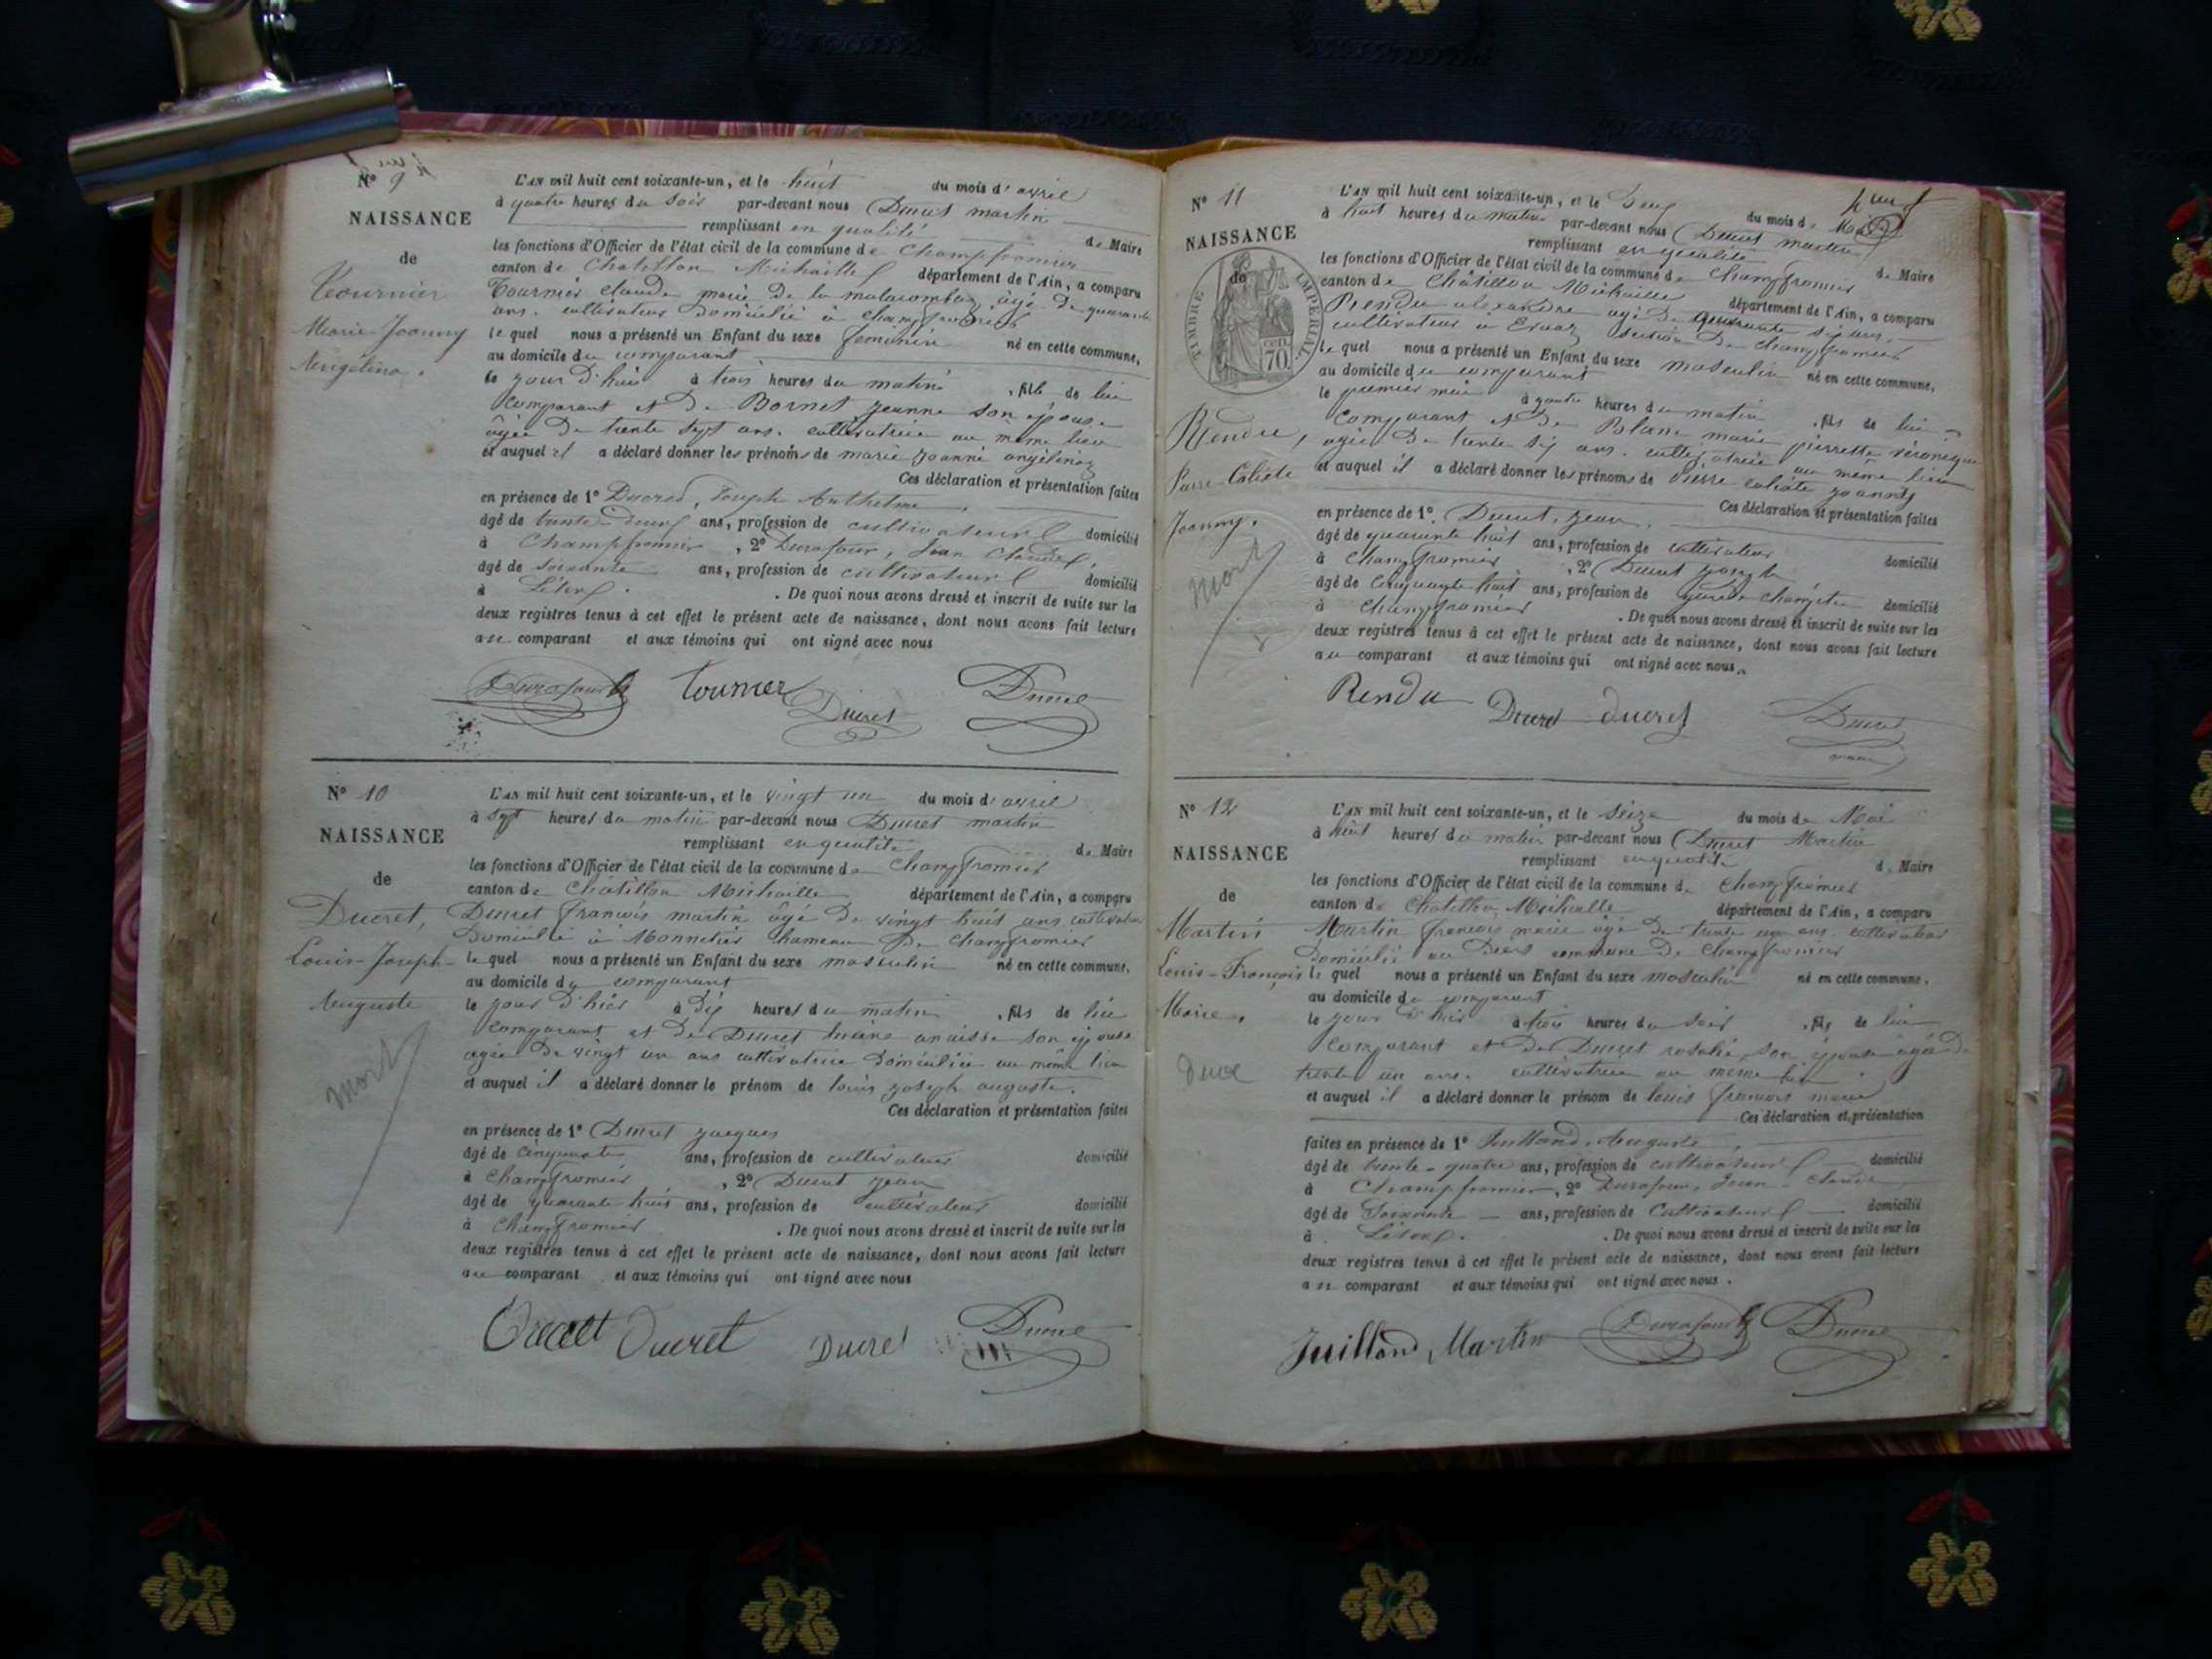 N° 9
NAISSANCE
de
Tournier
Marie-Joanny
Angélina.
L'AN mil huit cent soixante-un, et le huit du mois d'avril
à quatre heures du soir par-devant nous Ducret martin
remplissant en qualité de Maire
les fonctions d'Officier de l'état civil de la commune de Champfromier
canton de Chatillon Michaille département de l'Ain, a comparu
Tournier claude marie de la malacombaz âgé de quarante
ans. cultivateur domicilié à champfromier
le quel nous a présenté un Enfant du sexe feminin né en cette commune,
au domicile du comparant
le jour d'hui à trois heures du matin, fille de lui
comparant et de Bornet jeanne son épouse
âgée de trente sept ans. cultivatrice au même lieu
et auquel il a déclaré donner les prénoms de marie joanni angélina
Ces déclaration et présentation faites
en présence de 1° Ducret, Joseph Anthelme,
âgé de trente-deux ans, profession de cultivateur domicilié
à Champfromier, 2° Durafour, Jean Claude,
âgé de soixante ans, profession de cultivateur domicilié
à . De quoi nous avons dressé et inscrit de suite sur les
deux registres tenus à cet effet le présent acte de naissance, dont nous avons fait lecture
au comparant et aux témoins qui ont signé avec nous
Durafour Tournier Ducret Ducret
N° 10
NAISSANCE
de
Ducret,
Louis-Joseph-
Auguste
mort
L'AN mil huit cent soixante-un, et le vingt un du mois d'avril
à sept heures du matin par-devant nous Ducret martin
remplissant en qualité de Maire
les fonctions d'Officier de l'état civil de la commune de Champfromier
canton de Chatillon Michaille département de l'Ain, a comparu
Ducret françois martin âgé de vingt huit ans cultivateur
domicilié à Monnetier hameau de champfromier
le quel nous a présenté un Enfant du sexe masculin né en cette commune,
au domicile du comparant
le jour d'hier à dix heures du matin, fils de lui
comparant et de Ducret son épouse
agée de vingt un ans cultivatrice domiciliée au même lieu
et auquel il a déclaré donner le prénom de louis joseph auguste.
Ces déclaration et présentation faites
en présence de 1° Ducret jacques
âgé de cinquante ans, profession de cultivateur domicilié
à champfromier, 2° Ducret jean
âgé de quarante huit ans, profession de cultivateur domicilié
à champfromier. De quoi nous avons dressé et inscrit de suite sur les
deux registres tenus à cet effet le présent acte de naissance, dont nous avons fait lecture
au comparant et aux témoins qui ont signé avec nous
Ducret Ducret Ducret Ducret
N° 11
NAISSANCE
de
TIMBRE IMPERIAL
70
Rendu,
Pierre-Calixte
Joanny.
mort
L'AN mil huit cent soixante-un, et le deux du mois de Mai
à huit heures du matin par-devant nous Ducret martin
remplissant en qualité de Maire
les fonctions d'Officier de l'état civil de la commune de Champfromier
canton de Châtillon Michaille département de l'Ain, a comparu
Rendu alexandre agé de quarante six ans.
cultivateur à Evuaz section de champfromier
le quel nous a présenté un Enfant du sexe masculin né en cette commune,
au domicile du comparant
le premier mai à quatre heures du matin, fils de lui
comparant et de Blanc marie pierrette véronique
agée de trente six ans. cultivatrice au même lieu
et auquel il a déclaré donner les prénoms de Pierre calixte joanny
Ces déclaration et présentation faites
en présence de 1° Ducret, jean,
âgé de quarante huit ans, profession de cultivateur domicilié
à Champfromier, 2° Ducret joseph
âgé de cinquante huit ans, profession de garde champêtre domicilié
à Champfromier. De quoi nous avons dressé et inscrit de suite sur les
deux registres tenus à cet effet le présent acte de naissance, dont nous avons fait lecture
au comparant et aux témoins qui ont signé avec nous.
Rendu Ducret ducret Ducret
N° 12
NAISSANCE
de
Martin
Louis-François
Marie.
L'AN mil huit cent soixante-un, et le seize du mois de Mai
à huit heures du matin par-devant nous Ducret Martin
remplissant en qualité de Maire
les fonctions d'Officier de l'état civil de la commune de Champfromier
canton de Chatillon Michaille département de l'Ain, a comparu
Martin françois marie âgé de trente un ans. cultivateur
domicilié au commune de champfromier
le quel nous a présenté un Enfant du sexe masculin né en cette commune,
au domicile du comparant
le jour d'hier à trois heures du soir, fils de lui
comparant et de Ducret rosalie, son épouse agée de
trente un ans. cultivatrice au même lieu.
et auquel il a déclaré donner le prénom de louis françois marie
Ces déclaration et présentation
faites en présence de 1° Juilland, Auguste,
âgé de trente-quatre ans, profession de cultivateur domicilié
à Champfromier, 2° Durafour, Jean-Claude
âgé de soixante ans, profession de cultivateur domicilié
à . De quoi nous avons dressé et inscrit de suite sur les
deux registres tenus à cet effet le présent acte de naissance, dont nous avons fait lecture
au comparant et aux témoins qui ont signé avec nous.
Juilland, Martin Durafour Ducret